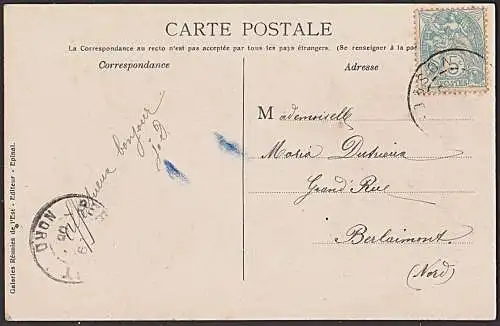 CARTE POSTALE
La Correspondance au recto n'est pas acceptée par tous les pays étrangers. (Se renseigner à la pos
Correspondance
Adresse
5
POSTES
bonjour
J.D.
Mademoiselle
Maria
Grand Rue
Berlaimont
(Nord)
NORD
Galeries Réunies de l'Est - Editeur - Epinal.